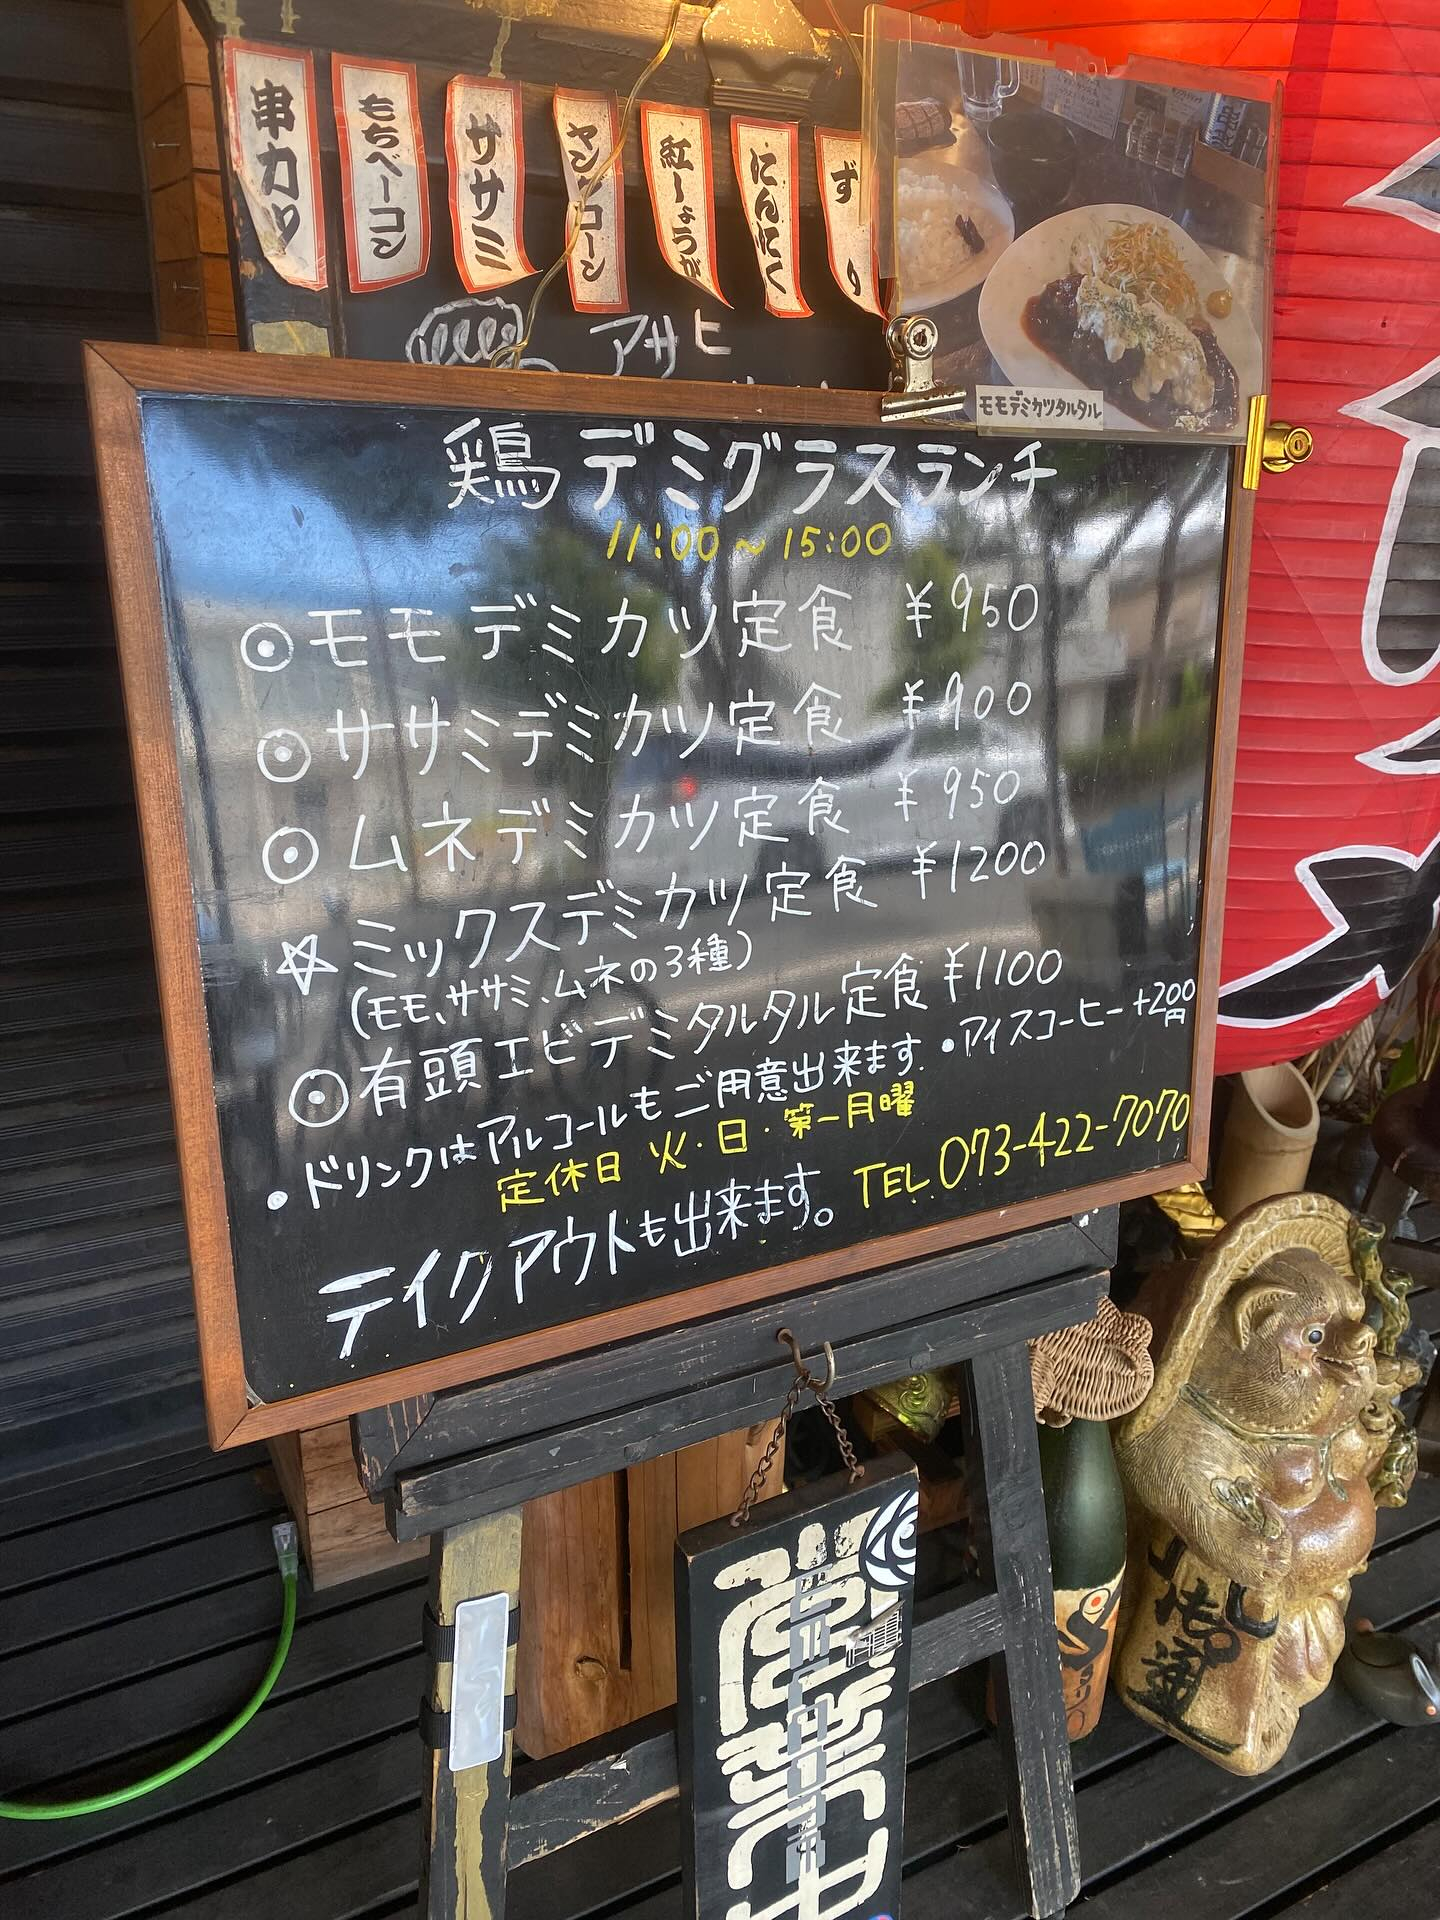 串カツ
もちベーコン
ササミ
ヤングコーン
紅しょうが
にんにく
ずり
アサヒ
モモデミカツタルタル
鶏デミグラスランチ
11:00〜15:00
◉モモデミカツ定食 ¥950
◉ササミデミカツ定食 ¥900
◉ムネデミカツ定食 ¥950
☆ミックスデミカツ定食 ¥1200
(モモ、ササミ、ムネの3種)
◉有頭エビデミタルタル定食 ¥1100
・ドリンクはアルコールもご用意出来ます。・アイスコーヒー+200円
定休日 火・日・第一月曜
テイクアウトも出来ます。 TEL 073-422-7070
営業中